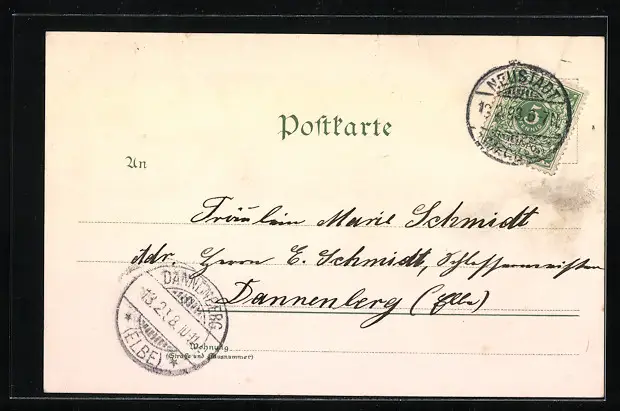 NEUSTADT
5
Postkarte
An
Fräulein Marie Schmidt
Adr. Herrn E. Schmidt, Schlossermeister
Dannenberg (Elbe)
DANNENBERG
13.2.
(ELBE)
Wohnung
(Straße und Hausnummer)